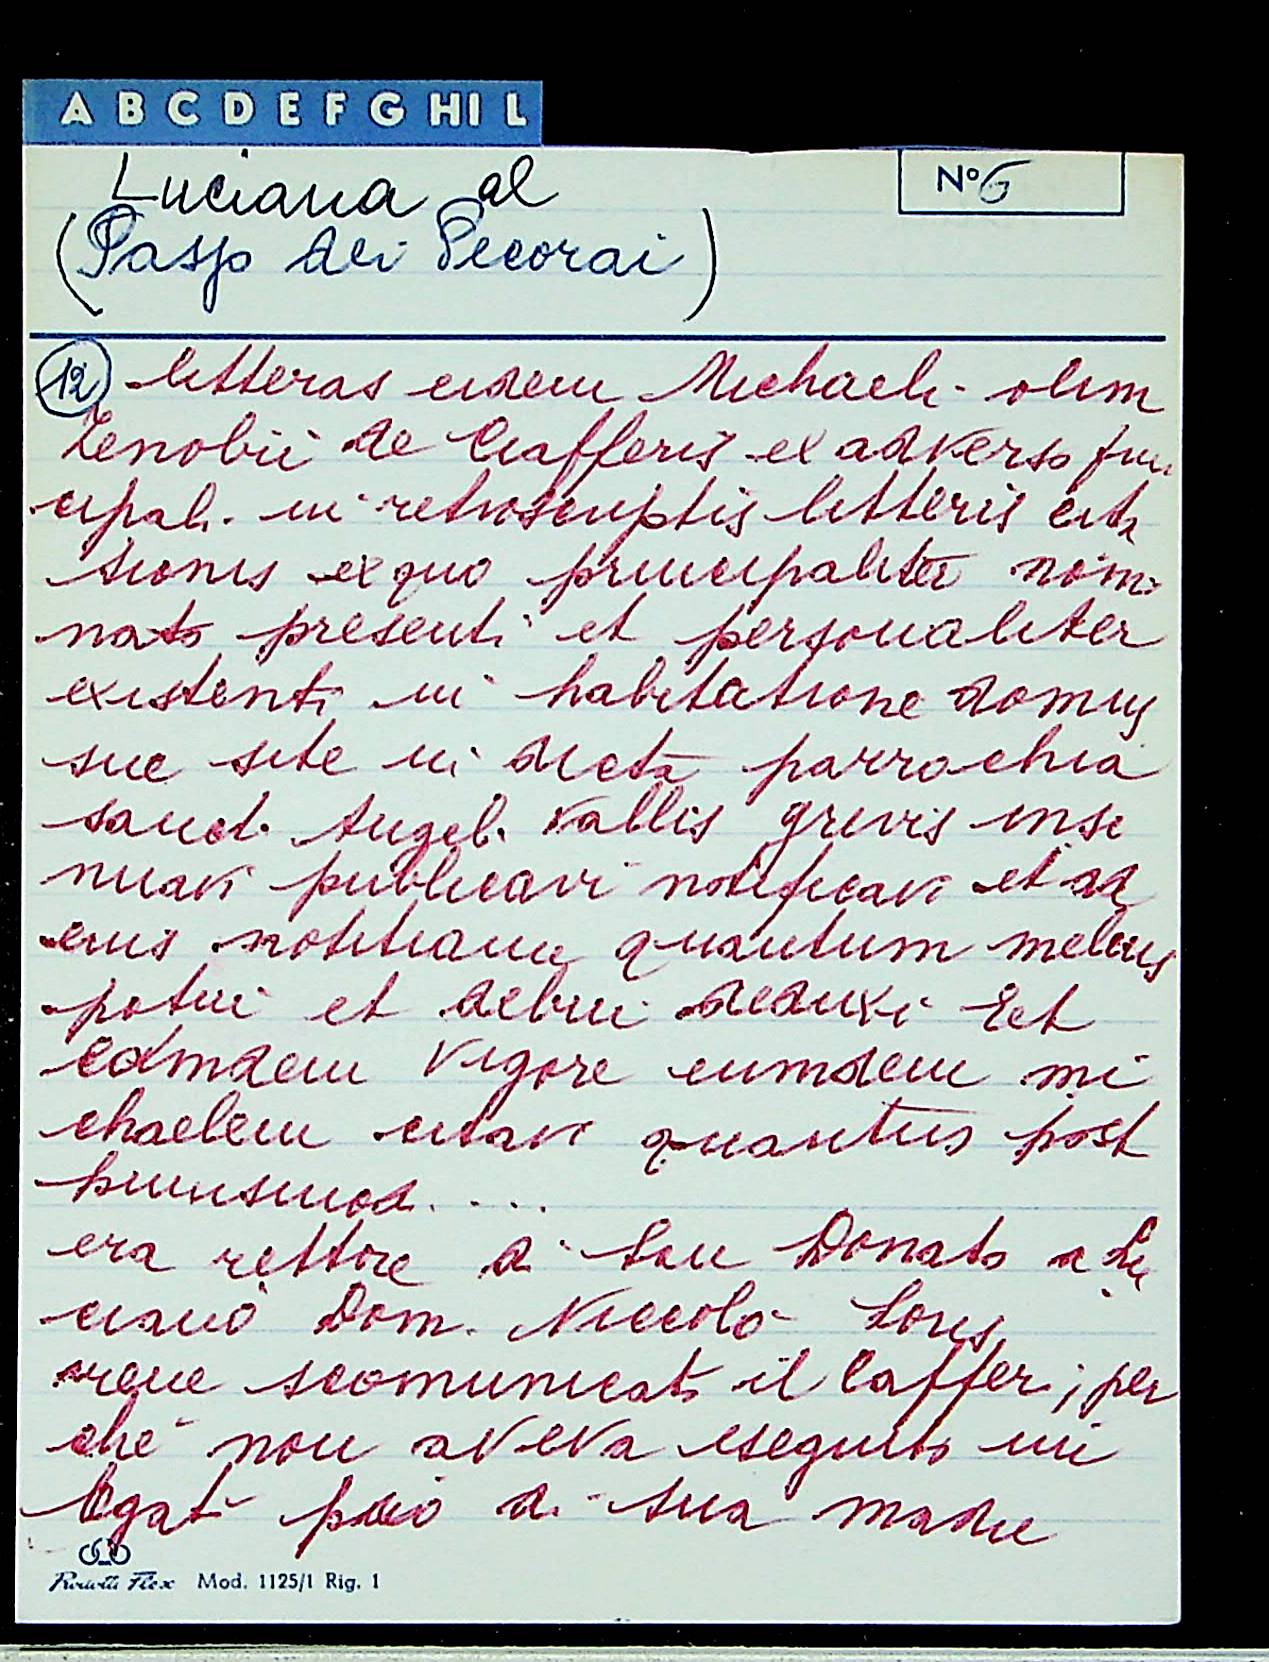 A B C D E F G HI L
Luciana al
(Passo dei Pecorai)
N° 6
12 litteras eidem Michaeli olim
Zenobii de Ciafferis ex adverso prin
cipali in retroscriptis litteris cita
tionis ex quo principaliter nomi
nato presenti et personaliter
existenti in habitatione domus
sue site in dicta parrochia
sancti Angeli Vallis grevis insi
nuavi publicavi notificavi et ad
eius notitiam quantum melius
potui et debui deduxi Et
eamdem vigore eumdem mi
chaelem citavi quantus post
huiusmod. ....
era rettore di San Donato a Lu
ciano Dom. Niccolò
viene scomunicato il Caffer; per
ché non aveva eseguito un
legato pio di sua madre
Mod. 1125/1 Rig. 1